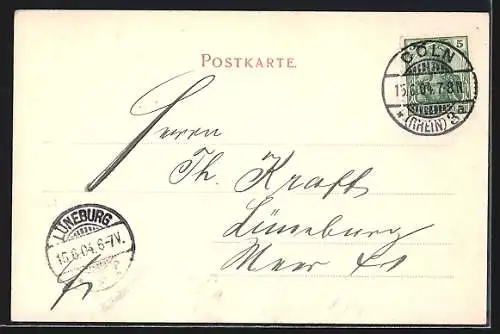 POSTKARTE.
5
CÖLN
15.6.04.7-8N
* (RHEIN) 3a
Herrn
Th. Kraft
Lüneburg
LÜNEBURG
15.6.04.6-7V.